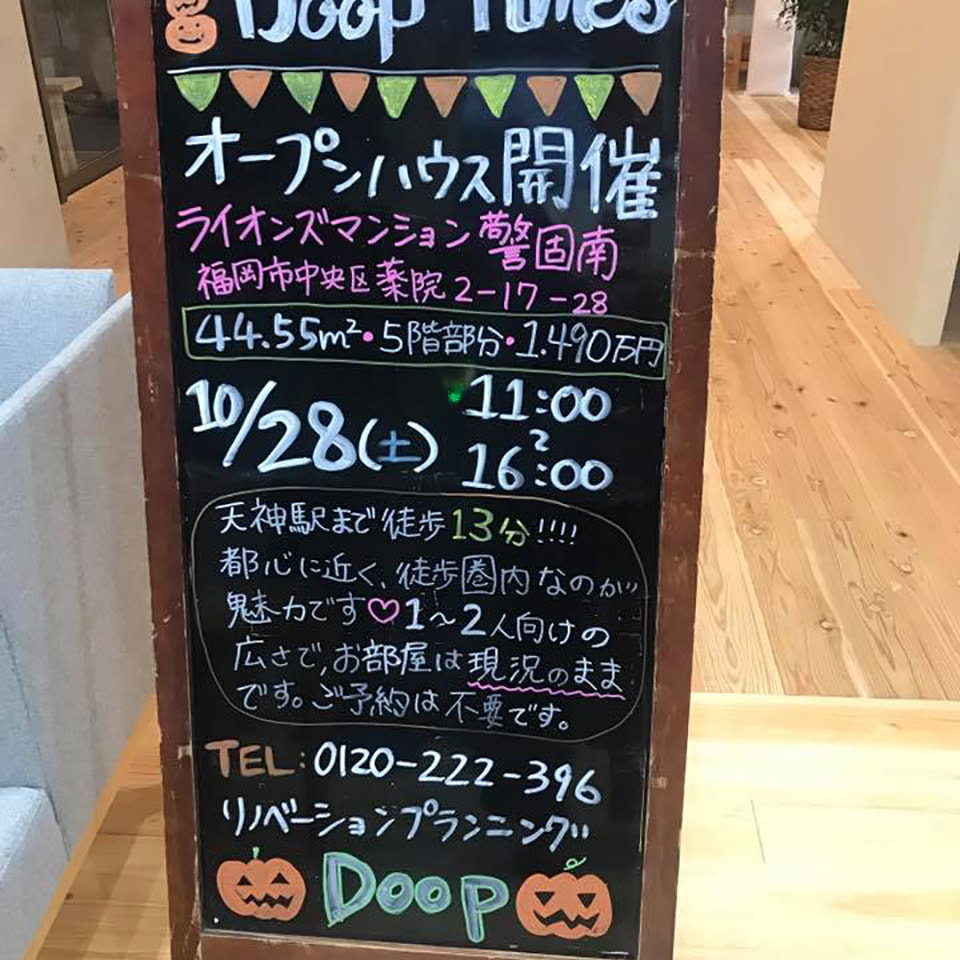 Doop Times
オープンハウス開催
ライオンズマンション警固南
福岡市中央区薬院2-17-28
44.55m²・5階部分・1.490万円
10/28(土) 11:00
〜
16:00
天神駅まで徒歩13分!!!!
都心に近く、徒歩圏内なのが
魅力です♡1〜2人向けの
広さで、お部屋は現況のまま
です。ご予約は不要です。
TEL:0120-222-396
リノベーションプランニング
Doop